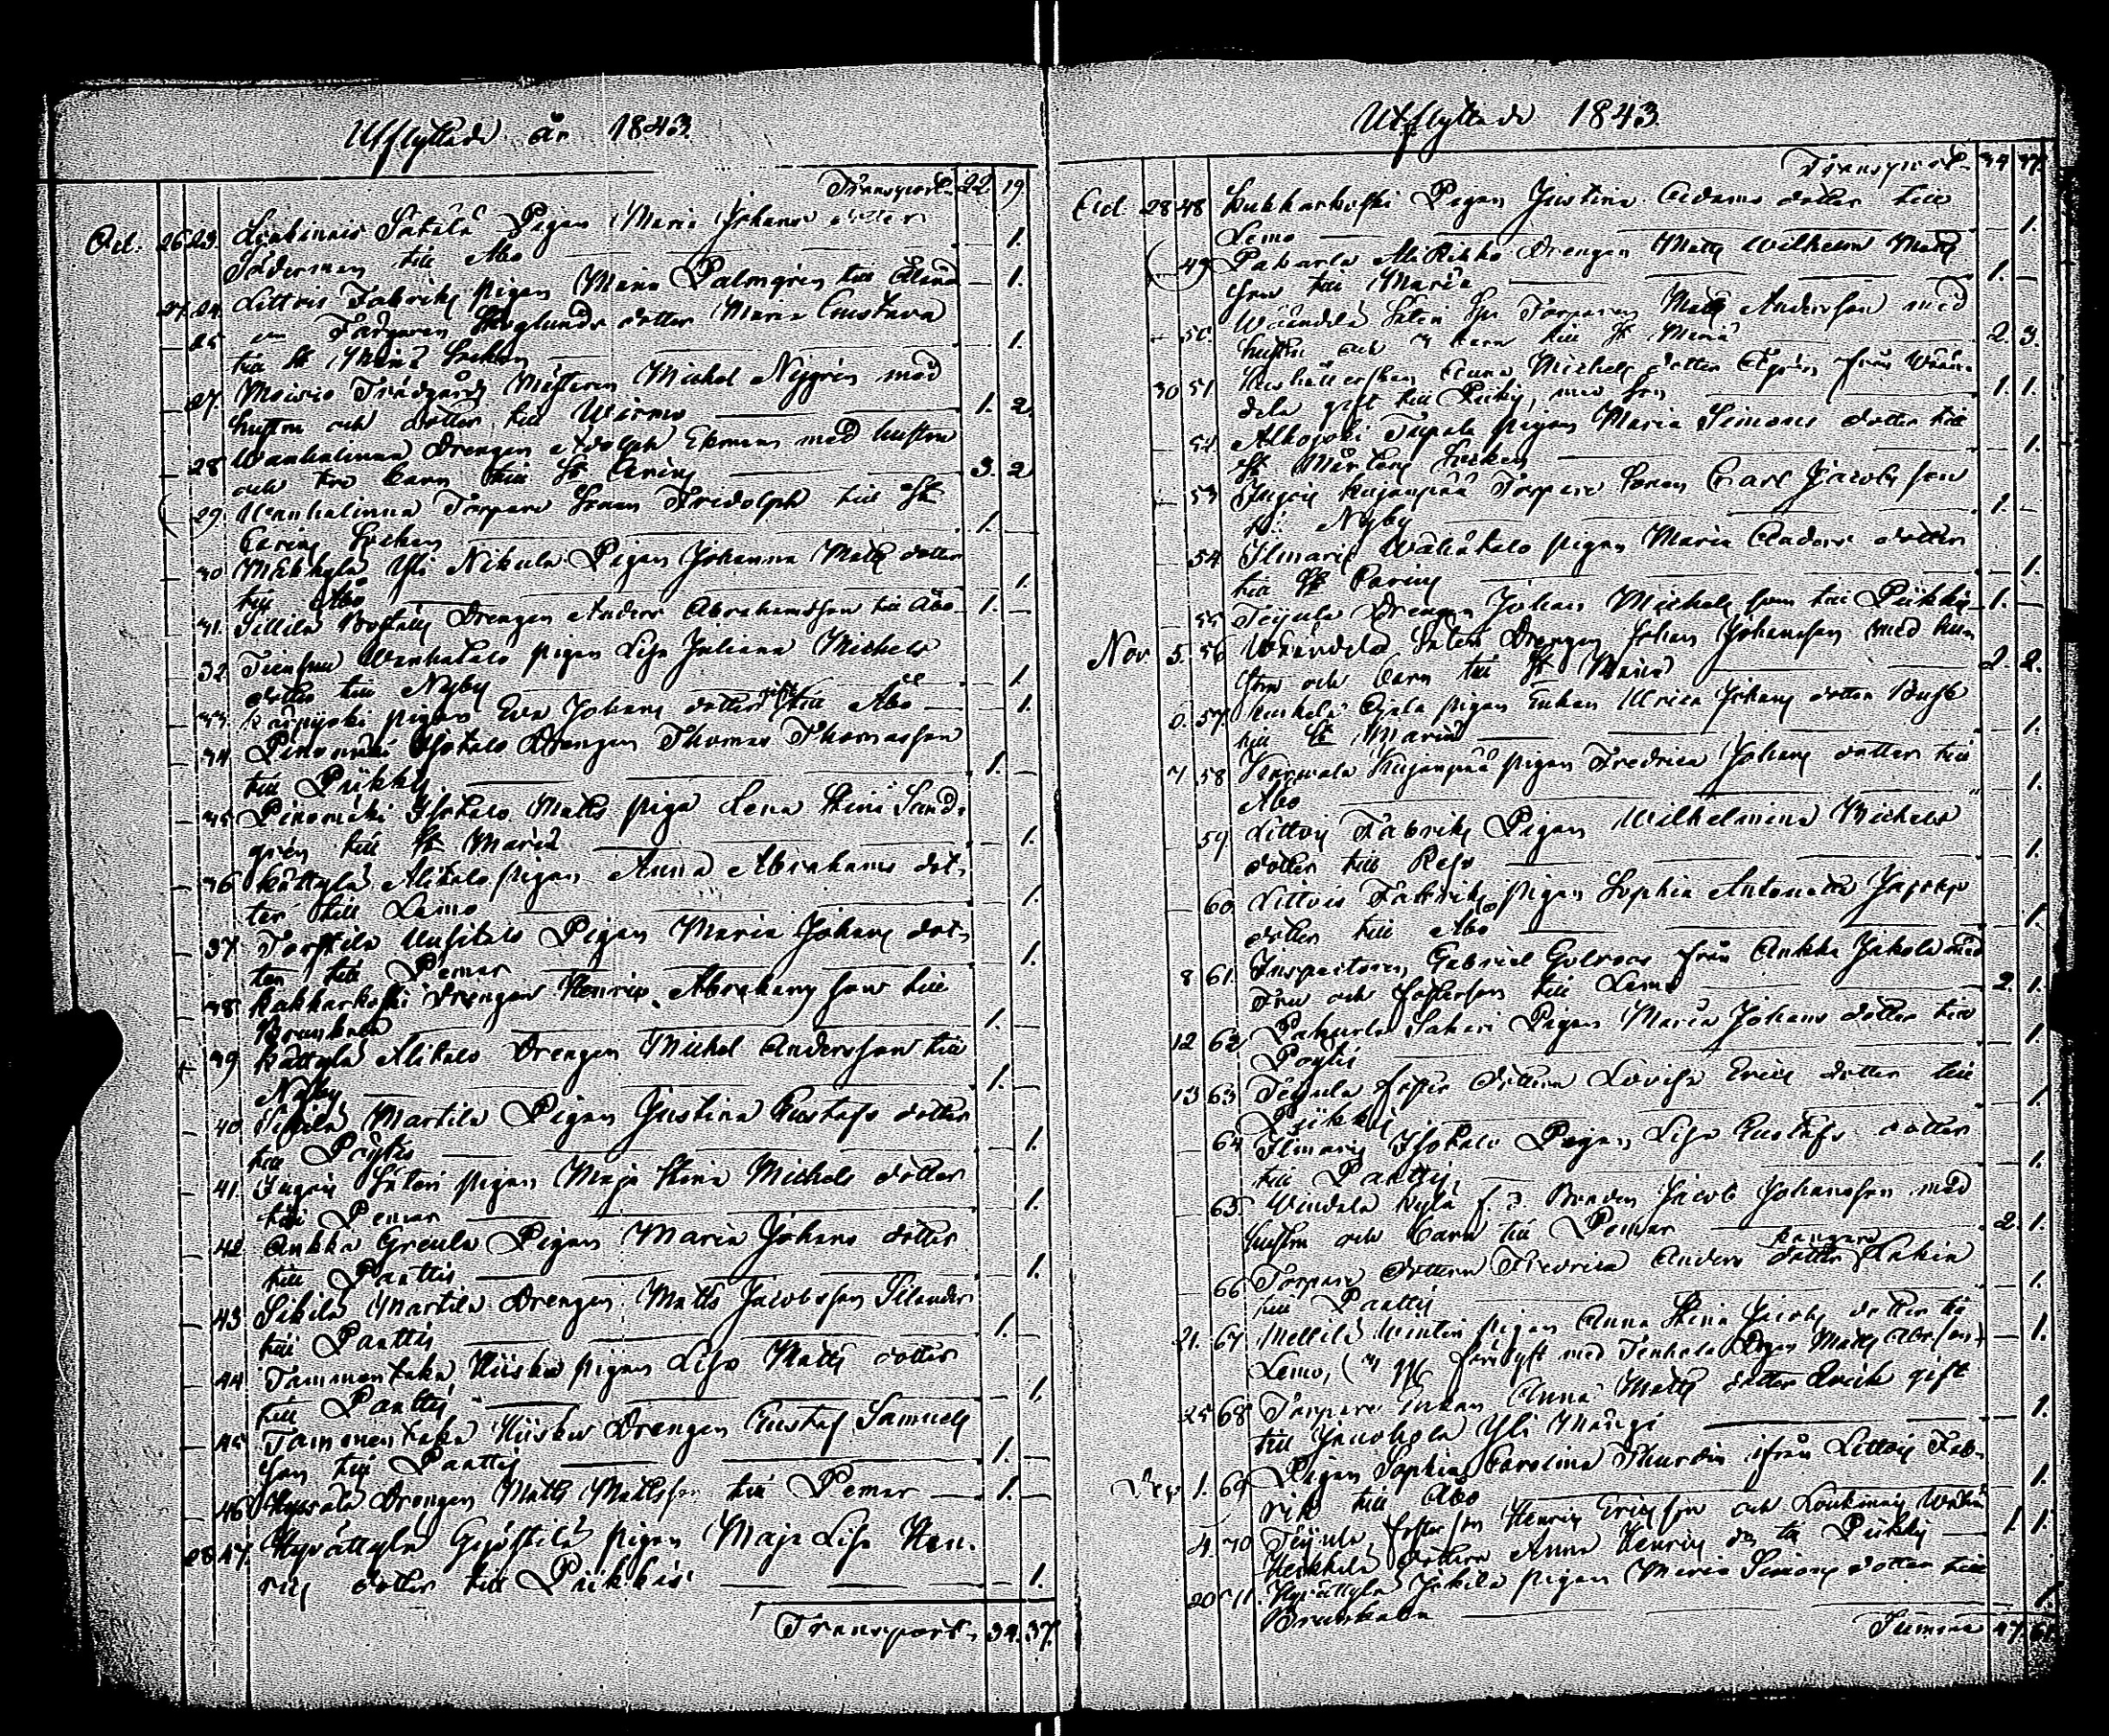 Utflyttade år 1843.
Transport 22. 19.
Oct. 26 23. Liukinais Sakala Pigan Maria Johans dotter
Söderman till Åbo 1.
27. 24. Littois Fabriks pigan Maria Palmgrén till Åland 1.
25 Färgaren Skoglunds dotter Maria Gustava
till St Mariæ Socken 1.
27. Moisio Trädgårds Mästaren Michel Nygrén med
hustru och dotter till Wirmo 1. 2.
28 Wanhalinna Drengen Adolph Ekman med hustru
och tre barn till St Carins 3. 2.
29. Wanhalinna Torpare Sonen Fridolph till St
Carins Socken 1.
30 Mäkkylä Yli Nikula Pigan Johanna Matts dotter
till Åbo 1.
31. Sillilä Boställs Drengen Anders Abrahamsson till Åbo 1.
32. Wanhatalo pigan Lisa Juliana Michels
dotter till Nyby 1.
33. Karpijoki pigan Eva Johans dotter gift till Åbo 1.
34 Pinomäki Isotalo Drengen Thomas Thomasson
till Piikkis 1.
35 Pinomäki Isotalo Matts piga Lena Stina Sand-
grén till St Mariæ 1.
36 Kättylä Alitalo pigan Anna Abrahams dot-
ter till Lemo 1.
37. Torstila Uusitalo Pigan Maria Johans dot-
ter till Pemar 1.
38. Kukkarkoski Drengen Henric Abrahams son till
Brunkala 1.
39 Kättylä Alitalo Drengen Michel Andersson till
Nyby 1.
40. Sikilä Martila Pigan Justina Gustafs dotter
till Pöytis 1.
41. Ingois Säteri pigan Maja Stina Michels dotter
till Pemar 1.
42. Ankka Greula Pigan Maria Johans dotter
till Panttis 1.
43 Sikilä Martila Drengen Matts Jacobsson Silander
till Panttis 1.
44 Tammentaka Hiisko pigan Lisa Matts dotter
till Panttis 1.
45 Tammentaka Hiisko Drengen Gustaf Samuels
son till Panttis 1.
46 Drengen Matts Mattsson till Pemar 1.
28 47. Hyvättylä Pigan Maja Lisa Hen-
rics dotter till Piikkis 1.
Transport 34. 37.
Utflyttade 1843.
Transport 34 37.
Oct. 28 48 Kukkarkoski Pigan Justina Adams dotter till
Lemo 1.
49 Pakurla Ali Kikko Drengen Matts Wilhelm Matts
son till Mariæ 1.
50. Wäändelä Säteri Torparen Matts Andersson med
hustru och barn till St Mariæ 2. 3.
30 51. Hushållerskan Anna Michels dotter från Wään-
delä gift till Piikis, med son 1. 1.
52. Alhojoki Tapala pigan Maria Simons dotter till
St Mårtens Socken 1.
53 Ingois Kujanpää Torpare Sonen Carl Jacobs son
till Nyby 1.
54 Ilmaris Wähätalo pigan Maria dotter
till St Carins 1.
55 Teijula Drengen Johan Michels son till Piikkis 1.
Nov. 5. 56 Wäändelä Säteri Drengen Johan Johansson med hus-
tru och barn till St Mariæ 2. 2.
6. 57. Ojala pigan Enkan Ulrica Johans dotter Busk
till St Mariæ 1.
7 58 Karvala Kujanpää pigan Fredrica Johans dotter till
Åbo 1.
59. Littois Fabriks Pigan Wilhelmina Michels
dotter till Reso 1.
60. Littois Fabriks pigan Sophia Antonetta
dotter till Åbo 1.
8 61. Inspectoren Gabriel från Ankka Jakola med
Fru och fosterson till Lemo 2. 1.
12 62 Pakurla Sakari Pigan Maria Johans dotter till
Pöytis 1.
13 63 Teijula foster dottren Lovisa Erics dotter till
Piikkis 1.
64 Ilmaris Isotalo Pigan Lisa Gustafs dotter
till Panttis 1.
65. Kylä f. d. Bonden Jacob Johansson med
hustru och barn till Pemar 2. 1.
66 Torpare dottren Fredrica Anders dotter
till Panttis 1.
21. 67 pigan Anna Stina Jacobs dotter till
Lemo, med Drgn Matts 1.
25 68 Torpare Enkan Anna Matts dotter gift
till Yli 1.
Dec. 1. 69 Pigan Sophia Carolina Thurdin ifrån Littois Fab-
rik till Åbo 1.
4. 70 Teijula foster son Henric Ericsson och
dottren Anna Henrics dr till Piikkis 1. 1.
20 71. Hyvättylä Jakila pigan Maria Simons dotter till
Brunkala 1.
Summa 47. 61.